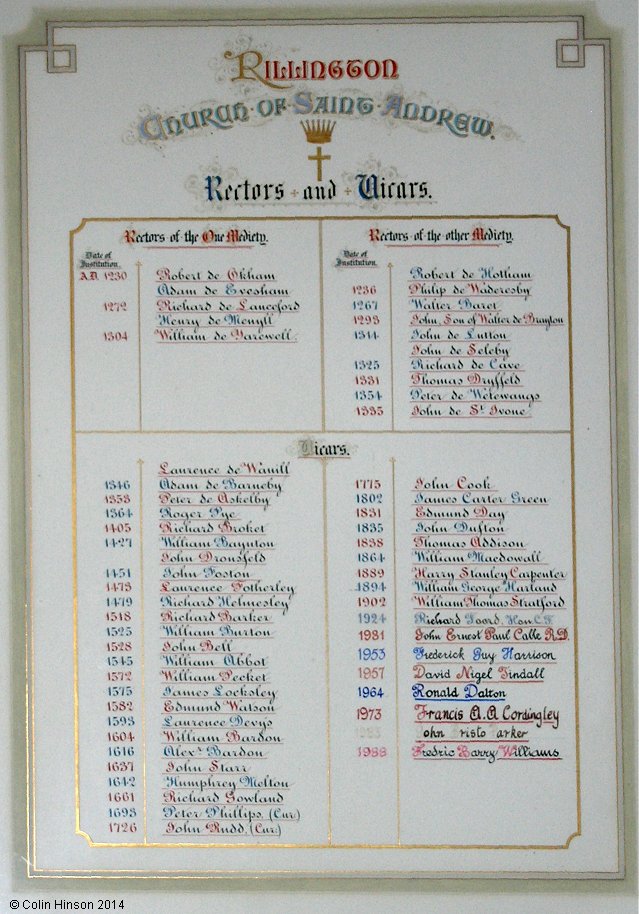 Rillington
Church of Saint Andrew.
Rectors and Vicars.
Rectors of the One Mediety.
Date of
Institution.
A.D. 1230 Robert de Okham
Adam de Evesham
1272 Richard de Lanceford
Henry de Menyll
1304 William de Yarewell.
Rectors of the other Mediety.
Date of
Institution.
Robert de Hotham
1236 Philip de Waderesby
1267 Walter Baret
1293 John, Son of Walter de Brayton
1314 John de Lutton
John de Seleby
1325 Richard de Cave
1331 Thomas Dryffeld
1334 Peter de Wetewangs
1335 John de St. Ivone.
Vicars.
Laurence de Wavill
1346 Adam de Barneby
1353 Peter de Askelby
1364 Roger Pye
1405 Richard Broket
1427 William Baynton
John Dronsfeld
1451 John Foston
1473 Laurence Fotherley
1479 Richard Helmesley
1518 Richard Barker
1525 William Burton
1528 John Bell
1545 William Abbot
1572 William Pecket
1575 James Locksley
1582 Edmund Watson
1593 Laurence Devys
1604 William Bardon
1616 Alexr Bardon
1637 John Starr
1642 Humphrey Melton
1661 Richard Gowland
1693 Peter Phillips, (Cur)
1726 John Rudd, (Cur:)
1775 John Cook
1802 James Carter Green
1831 Edmund Day
1835 John Dufton
1838 Thomas Addison
1864 William Macdowall
1889 Harry Stanley Carpenter
1894 William George Harland
1902 William Thomas Stratford
1924 Richard Foord, Hon. C.F.
1931 John Ernest Paul Calbe R.D.
1953 Frederick Guy Harrison
1957 David Nigel Tindall
1964 Ronald Dalton
1973 Francis A.A Cordingley
1988 Fredric Barry Williams
© Colin Hinson 2014